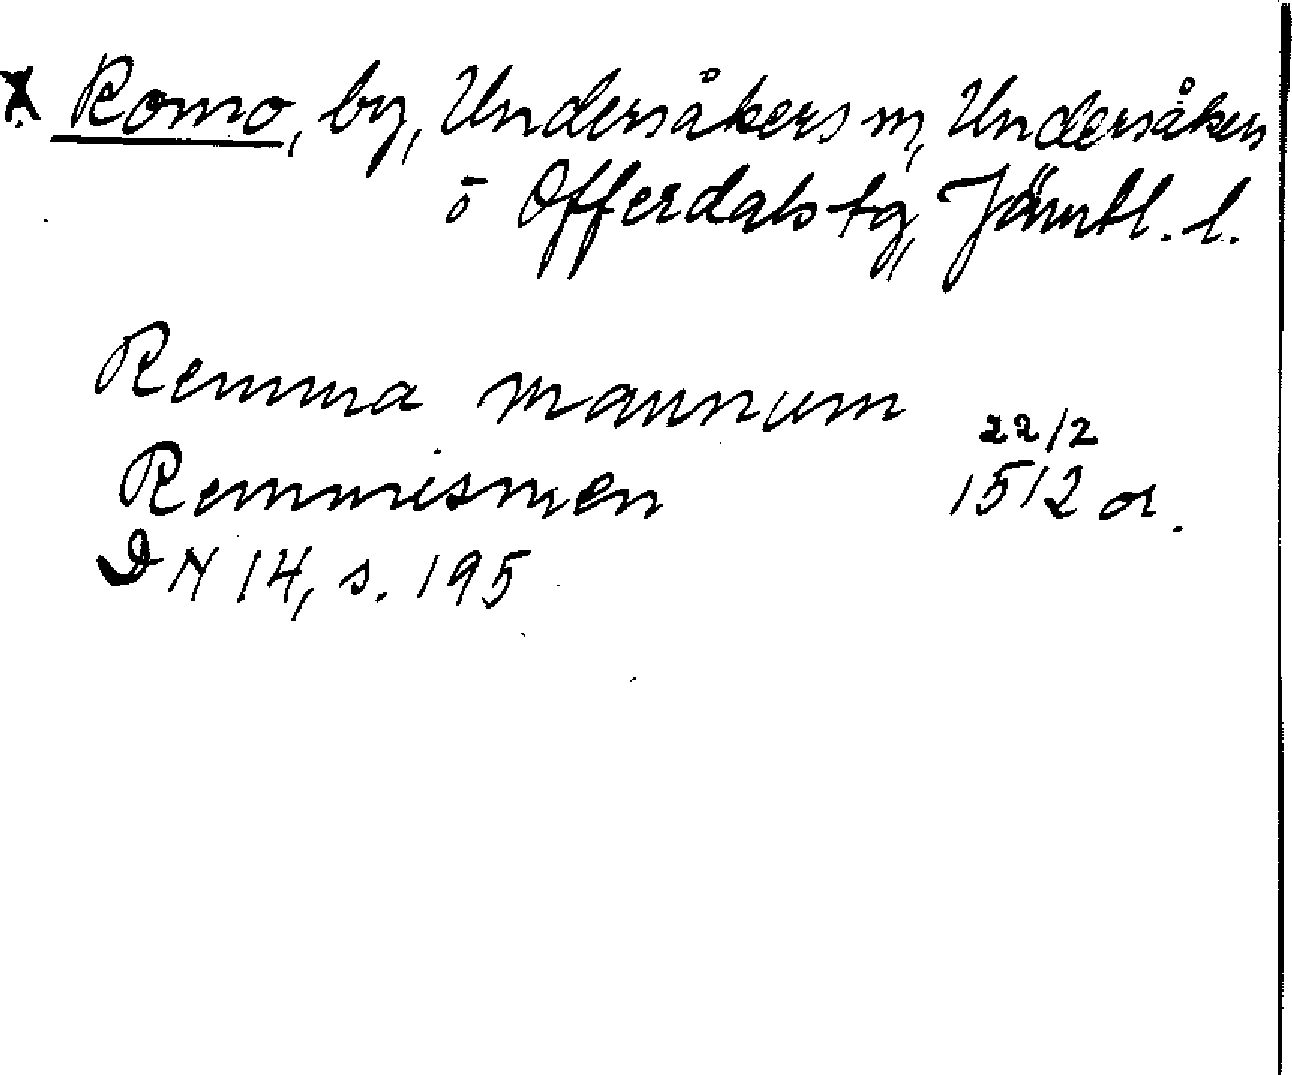 x Romo, by, Undersåkers sn, Undersåkers
o Offerdals tg, Jämtl. l.
Remma mannum
22/2
Remmismen 1512 or.
DN 14, s. 195